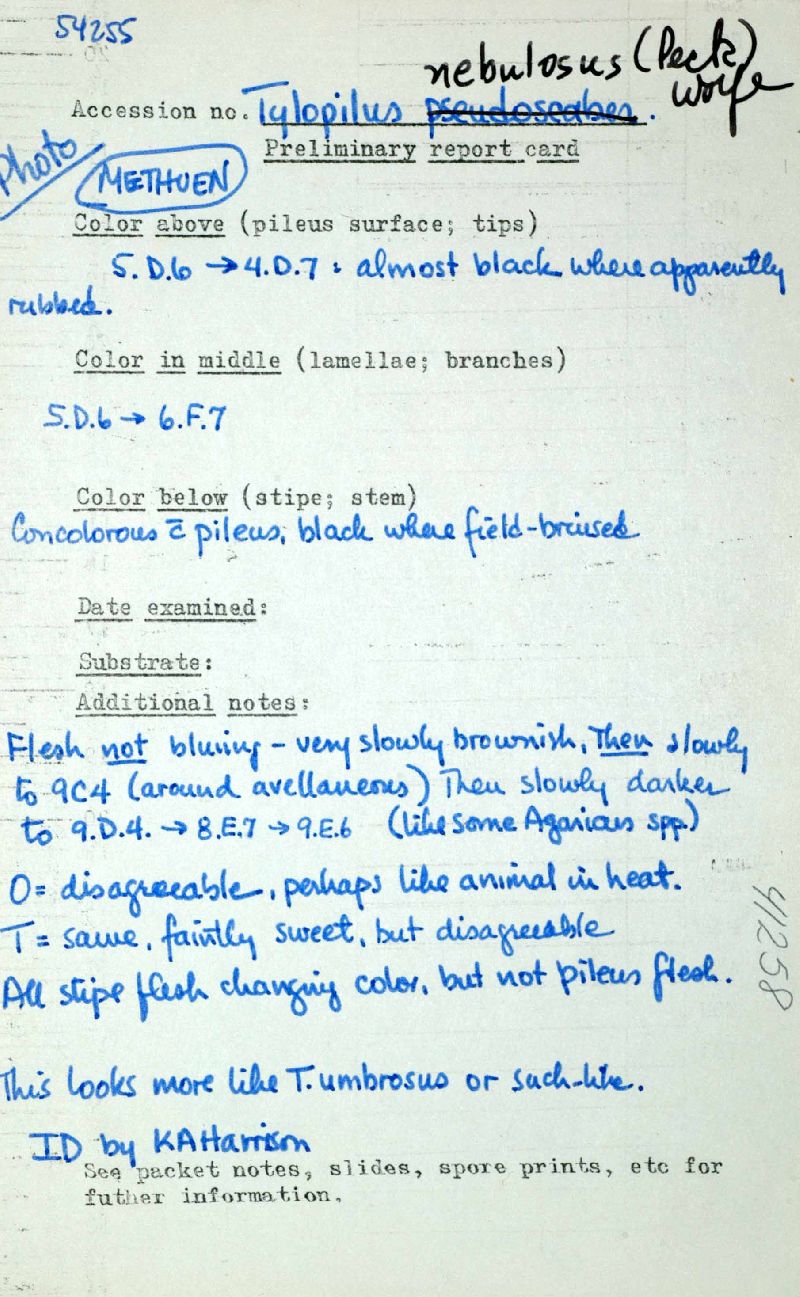 54255
nebulosus (Peck)
Wolfe
Accession no. Tylopilus pseudoscaber.
Preliminary report card
Photo
METHUEN
Color above (pileus surface; tips)
5.D.6 → 4.D.7 : almost black where apparently
rubbed.
Color in middle (lamellae; branches)
5.D.6 → 6.F.7
Color below (stipe; stem)
Concolorous c̄ pileus, black where field-bruised
Date examined:
Substrate:
Additional notes:
Flesh not bluing - very slowly brownish, Then slowly
to 9C4 (around avellaneous) Then slowly darker
to 9.D.4. → 8.E.7 → 9.E.6 (like some Agaricus spp.)
O = disagreeable, perhaps like animal in heat.
T = same, faintly sweet, but disagreeable
All stipe flesh changing color, but not pileus flesh.
41258
This looks more like T. umbrosus or such-like.
ID by KAHarrison
See packet notes, slides, spore prints, etc for
futher information.